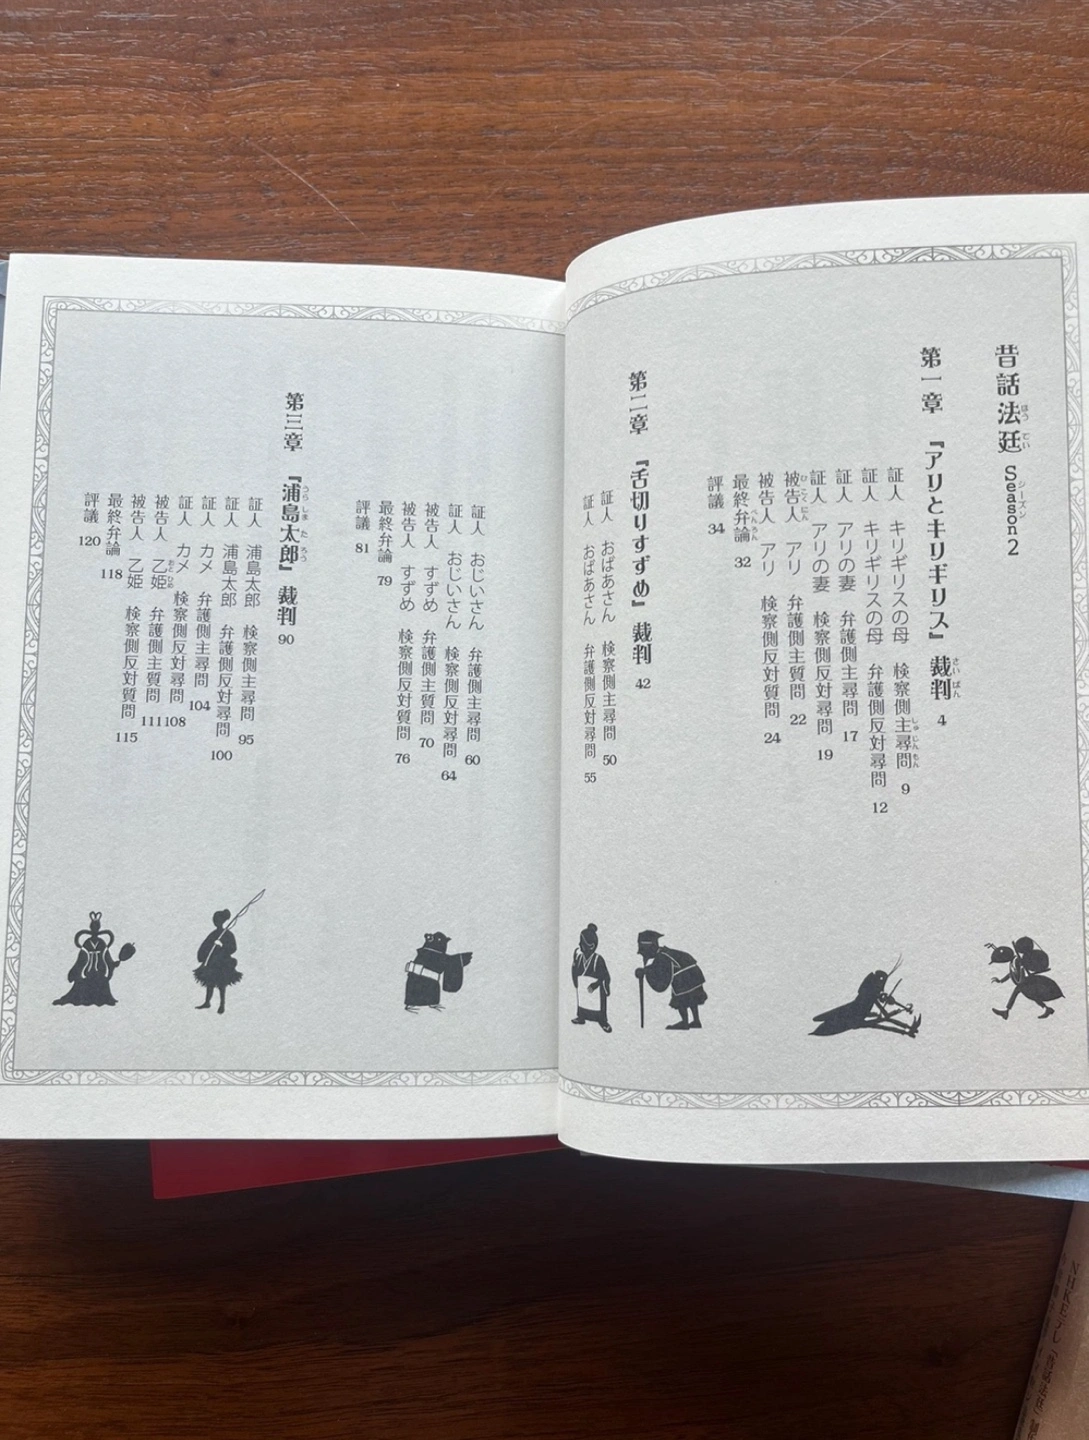 昔話法廷 Season2
ほうてい シーズン
第一章 『アリとキリギリス』裁判 4
さいばん
証人 キリギリスの母 検察側主尋問 9
しゅじんもん
証人 キリギリスの母 弁護側反対尋問 12
証人 アリの妻 弁護側主尋問 17
証人 アリの妻 検察側反対尋問 19
被告人 アリ 弁護側主質問 22
ひこくにん
被告人 アリ 検察側反対質問 24
最終弁論 32
べんろん
評議 34
第二章 『舌切りすずめ』裁判 42
証人 おばあさん 検察側主尋問 50
証人 おばあさん 弁護側反対尋問 55
証人 おじいさん 弁護側主尋問 60
証人 おじいさん 検察側反対尋問 64
被告人 すずめ 弁護側主質問 70
被告人 すずめ 検察側反対質問 76
最終弁論 79
評議 81
第三章 『浦島太郎』裁判 90
うらしまたろう
証人 浦島太郎 検察側主尋問 95
証人 浦島太郎 弁護側反対尋問 100
証人 カメ 弁護側主尋問 104
証人 カメ 検察側反対尋問 108
被告人 乙姫 弁護側主質問 111
おとひめ
被告人 乙姫 検察側反対質問 115
最終弁論 118
評議 120